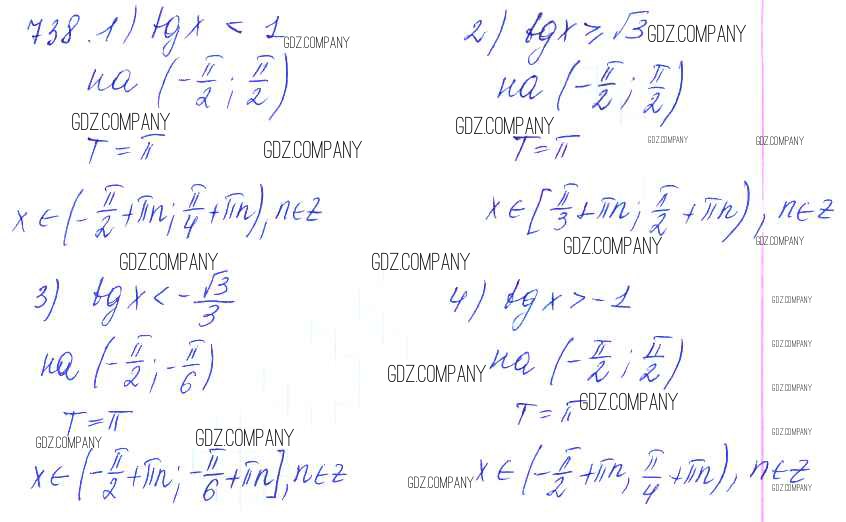 738. 1) tg x < 1
GDZ.COMPANY
на (-π/2; π/2)
GDZ.COMPANY
T = π
GDZ.COMPANY
x ∈ (-π/2 + πn; π/4 + πn), n ∈ Z
GDZ.COMPANY
2) tg x ≥ √3
GDZ.COMPANY
на (-π/2; π/2)
GDZ.COMPANY
T = π
GDZ.COMPANY
GDZ.COMPANY
x ∈ [π/3 + πn; π/2 + πn), n ∈ Z
GDZ.COMPANY
GDZ.COMPANY
GDZ.COMPANY
3) tg x < -√3/3
на (-π/2; -π/6)
T = π
GDZ.COMPANY
GDZ.COMPANY
x ∈ (-π/2 + πn; -π/6 + πn], n ∈ Z
4) tg x > -1
GDZ.COMPANY
GDZ.COMPANY
на (-π/2; π/2)
GDZ.COMPANY
GDZ.COMPANY
T = π
GDZ.COMPANY
GDZ.COMPANY
x ∈ (-π/2 + πn, π/4 + πn), n ∈ Z
GDZ.COMPANY
GDZ.COMPANY